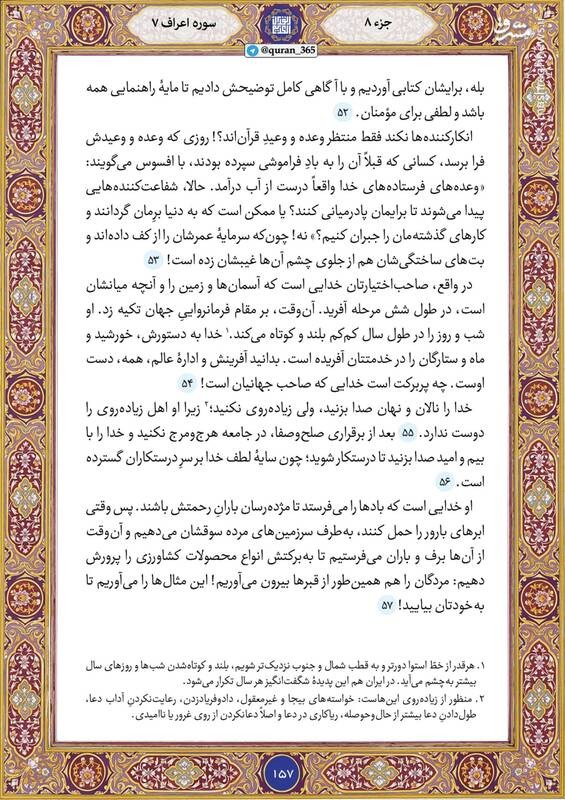 سوره اعراف ۷
جزء ۸
@quran_365
بله، برایشان کتابی آوردیم و با آگاهی کامل توضیحش دادیم تا مایهٔ راهنمایی همه
باشد و لطفی برای مؤمنان. ۵۲
انکارکننده‌ها نکند فقط منتظر وعده و وعیدِ قرآن‌اند؟! روزی که وعده و وعیدش
فرا برسد، کسانی که قبلاً آن را به بادِ فراموشی سپرده بودند، با افسوس می‌گویند:
«وعده‌های فرستاده‌های خدا واقعاً درست از آب درآمد. حالا، شفاعت‌کننده‌هایی
پیدا می‌شوند تا برایمان پادرمیانی کنند؟ یا ممکن است که به دنیا برِمان گردانند و
کارهای گذشته‌مان را جبران کنیم؟» نه! چون‌که سرمایهٔ عمرشان را از کف داده‌اند و
بت‌های ساختگی‌شان هم از جلوی چشم آن‌ها غیبشان زده است! ۵۳
در واقع، صاحب‌اختیارتان خدایی است که آسمان‌ها و زمین را و آنچه میانشان
است، در طول شش مرحله آفرید. آن‌وقت، بر مقام فرمانرواییِ جهان تکیه زد. او
شب و روز را در طول سال کم‌کم بلند و کوتاه می‌کند.۱ خدا به دستورش، خورشید و
ماه و ستارگان را در خدمتتان آفریده است. بدانید آفرینش و ادارهٔ عالم، همه، دست
اوست. چه پربرکت است خدایی که صاحب جهانیان است! ۵۴
خدا را نالان و نهان صدا بزنید، ولی زیاده‌روی نکنید؛۲ زیرا او اهل زیاده‌روی را
دوست ندارد. ۵۵ بعد از برقراری صلح‌وصفا، در جامعه هرج‌ومرج نکنید و خدا را با
بیم و امید صدا بزنید تا درستکار شوید؛ چون سایهٔ لطف خدا بر سرِ درستکاران گسترده
است. ۵۶
او خدایی است که بادها را می‌فرستد تا مژده‌رسان بارانِ رحمتش باشند. پس وقتی
ابرهای بارور را حمل کنند، به‌طرف سرزمین‌های مرده سوقشان می‌دهیم و آن‌وقت
از آن‌ها برف و باران می‌فرستیم تا به‌برکتش انواع محصولات کشاورزی را پرورش
دهیم: مردگان را هم همین‌طور از قبرها بیرون می‌آوریم! این مثال‌ها را می‌آوریم تا
به‌خودتان بیایید! ۵۷
۱. هرقدر از خطّ استوا دورتر و به قطب شمال و جنوب نزدیک‌تر شویم، بلند و کوتاه‌شدن شب‌ها و روزهای سال
بیشتر به‌چشم می‌آید. در ایران هم این پدیدهٔ شگفت‌انگیز هر سال تکرار می‌شود.
۲. منظور از زیاده‌روی این‌هاست: خواسته‌های بیجا و غیرمعقول، دادوفریادزدن، رعایت‌نکردنِ آداب دعا،
طول‌دادنِ دعا بیشتر از حال‌وحوصله، ریاکاری در دعا و اصلاً دعانکردن از روی غرور یا ناامیدی.
۱۵۷